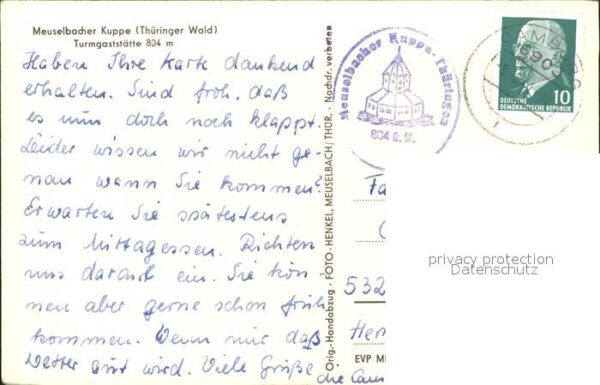 Meuselbacher Kuppe (Thüringer Wald)
Turmgaststätte 804 m
Haben Ihre Karte dankend
erhalten. Sind froh, daß
es nun doch noch klappt.
Leider wissen wir nicht ge-
nau wann Sie kommen?
Erwarten Sie spätestens
zum Mittagessen. Richten
uns darauf ein. Sie kön-
nen aber gerne schon früh
kommen. Wenn nur daß
Wetter gut wird. Viele Grüße
die Cam
Orig.-Handabzug - FOTO-HENKEL, MEUSELBACH/THÜR. - Nachdr. verboten
Meuselbacher Kuppe-Thüringen
804 ü. M.
DEUTSCHE
DEMOKRATISCHE REPUBLIK
10
Fa
532
Her
EVP M
privacy protection
Datenschutz